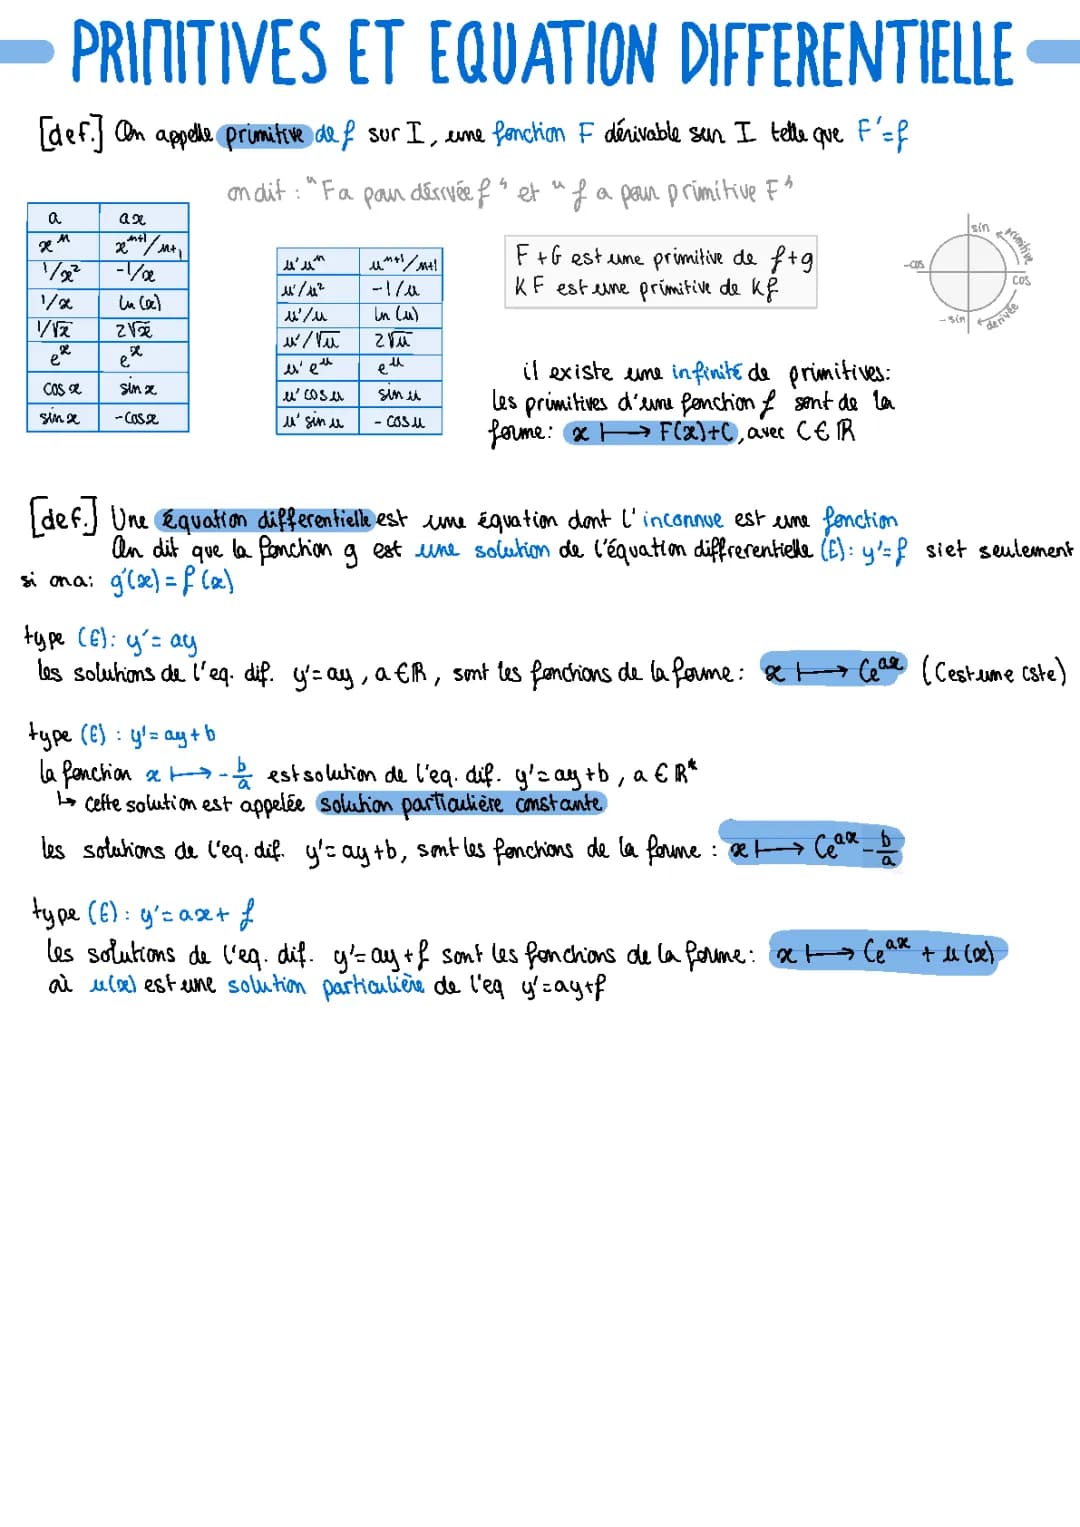 PRIMITIVES ET EQUATION DIFFERENTIELLE
[def.] On appelle primitive de f sur I, une fonction F dérivable sur I telle que F'=f
on dit : "F a pour dérivée f" et "f a pour primitive F"
a ax
xⁿ xⁿ⁺¹/n+1
1/x² -1/x
1/x ln(x)
1/√x 2√x
eˣ eˣ
cos x sin x
sin x -cos x
u'uⁿ uⁿ⁺¹/n+1
u'/u² -1/u
u'/u ln(u)
u'/√u 2√u
u'eᵘ eᵘ
u'cos u sin u
u'sin u -cos u
F+G est une primitive de f+g
KF est une primitive de kf
sin
primitive
-cos
cos
-sin
derivée
il existe une infinité de primitives:
les primitives d'une fonction f sont de la
forme: x ↦ F(x)+C, avec C∈ℝ
[def.] Une équation differentielle est une équation dont l'inconnue est une fonction
On dit que la fonction g est une solution de l'équation diffrerentielle (E): y'=f si et seulement
si on a: g'(x)=f(x)
type (E): y'=ay
les solutions de l'eq. dif. y'=ay, a∈ℝ, sont les fonctions de la forme: x ↦ Ceᵃˣ (C est une cste)
type (E): y'=ay+b
la fonction x ↦ -b/a est solution de l'eq. dif. y'=ay+b, a∈ℝ*
↳ cette solution est appelée solution particulière constante
les solutions de l'eq. dif. y'=ay+b, sont les fonctions de la forme : x ↦ Ceᵃˣ - b/a
type (E): y'=ax+f
les solutions de l'eq. dif. y'=ay+f sont les fonctions de la forme: x ↦ Ceᵃˣ + u(x)
où u(x) est une solution particulière de l'eq y'=ay+f